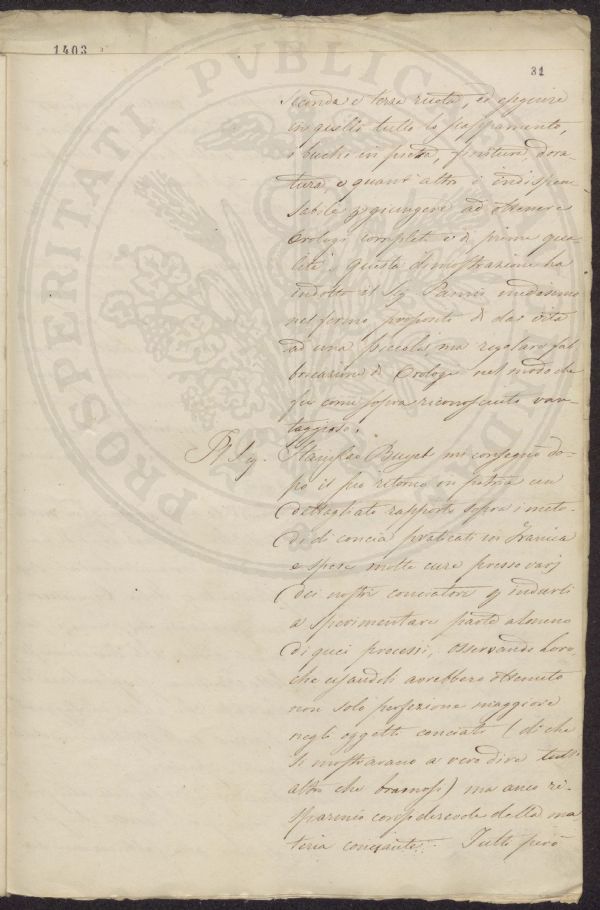 1403
31
PROSPERITATI PUBLICAE
seconda e terza ruota, ed eseguire
in quello tutto lo scappamento,
i buchi in pietra, finitura, dora-
tura, e quant'altro è indispen-
sabile p giungere ad ottenere
Orologi completi e di prima qua-
lità. Questa dimostrazione ha
indotto il Sig. medesimo
nel fermo proposito di dar vita
ad una piccola ma regolare fab-
bricazione di Orologi nel modo che
fu come sopra riconosciuto van-
taggioso.
Il Sig. Stanislao mi consegnò do-
po il suo ritorno in patria un
dettagliato rapporto sopra i meto-
di di concia praticati in Francia
e spese molte cure presso varj
dei nostri conciatori p indurli
a sperimentare parte almeno
di quei processi, osservando loro,
che usandoli avrebbero ottenuto
non solo perfezione maggiore
negli oggetti conciati (di che
si mostrarano a vero dire tutt'
altro che bramosi) ma anco ri-
sparmio considerevole della ma
teria conciante. Tutti però